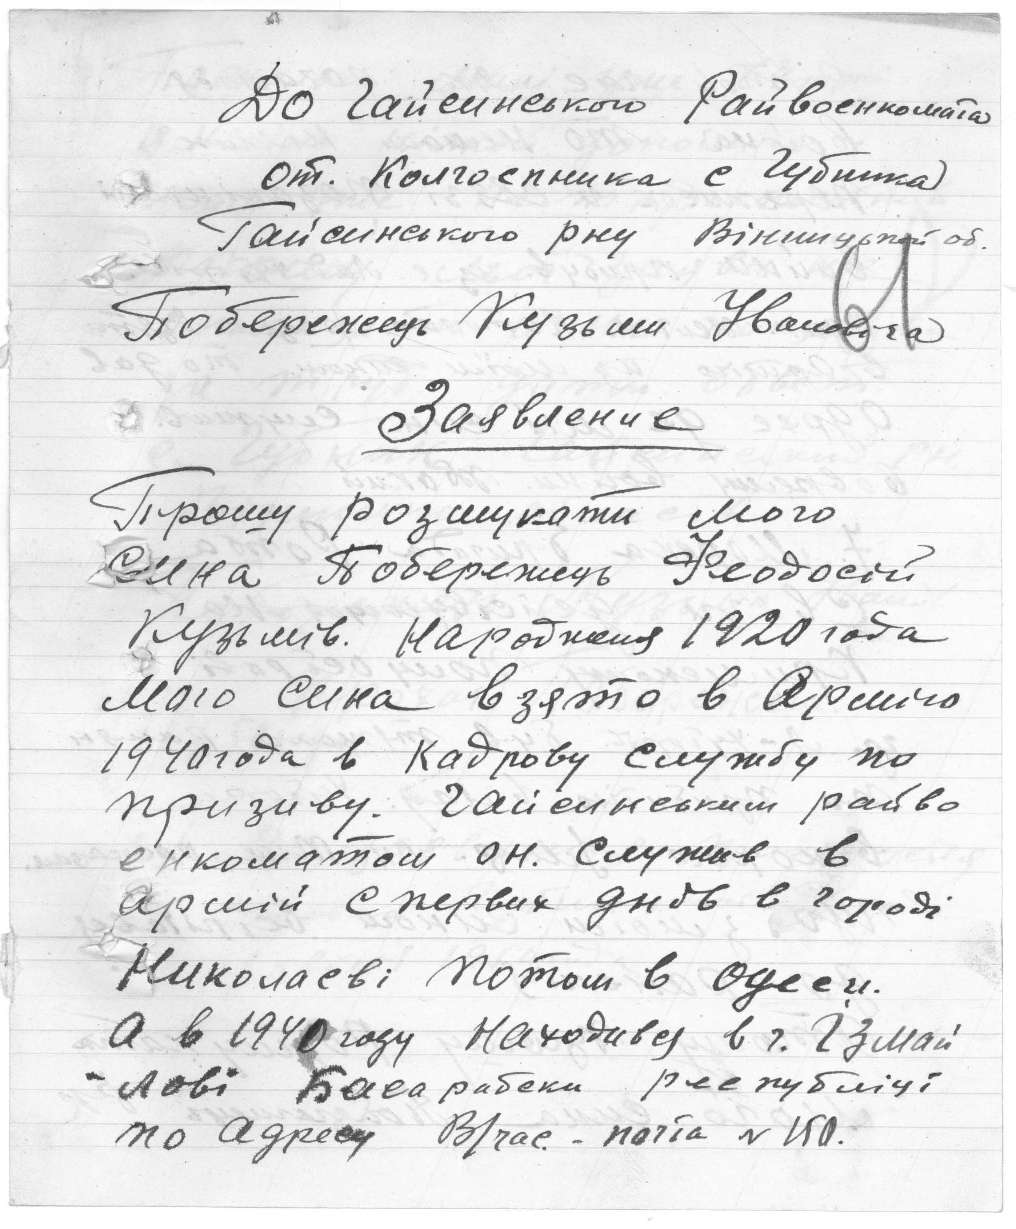 До Гайсинського Райвоєнкомата
от. Колгоспника с Губника
Гайсинського рну Вінницької об.
61
Побережець Кузьми Ивановича
Заявление
Прошу розшукати мого
Сина Побережець Феодосій
Кузьмів. Народженя 1920 года
мого сина взято в Армію
1940 года в Кадрову службу по
призиву. Гайсинським райво
енкоматом он. служив в
армій с первих днів в городі
Николаєві потом в Одеси.
А в 1940 году находився в г. Ізмай
-лові Басарабски республіці
по адресу В/час. - почта № 150.